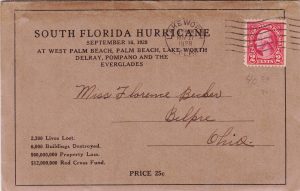 SOUTH FLORIDA HURRICANE
SEPTEMBER 16, 1928
AT WEST PALM BEACH, PALM BEACH, LAKE WORTH
DELRAY, POMPANO AND THE
EVERGLADES
LAKE WORTH
1928
2 CENTS 2
Miss Florence Becker
Belpre
Ohio.
2,300 Lives Lost.
8,000 Buildings Destroyed.
$60,000,000 Property Loss.
$12,000,000 Red Cross Fund.
PRICE 25c